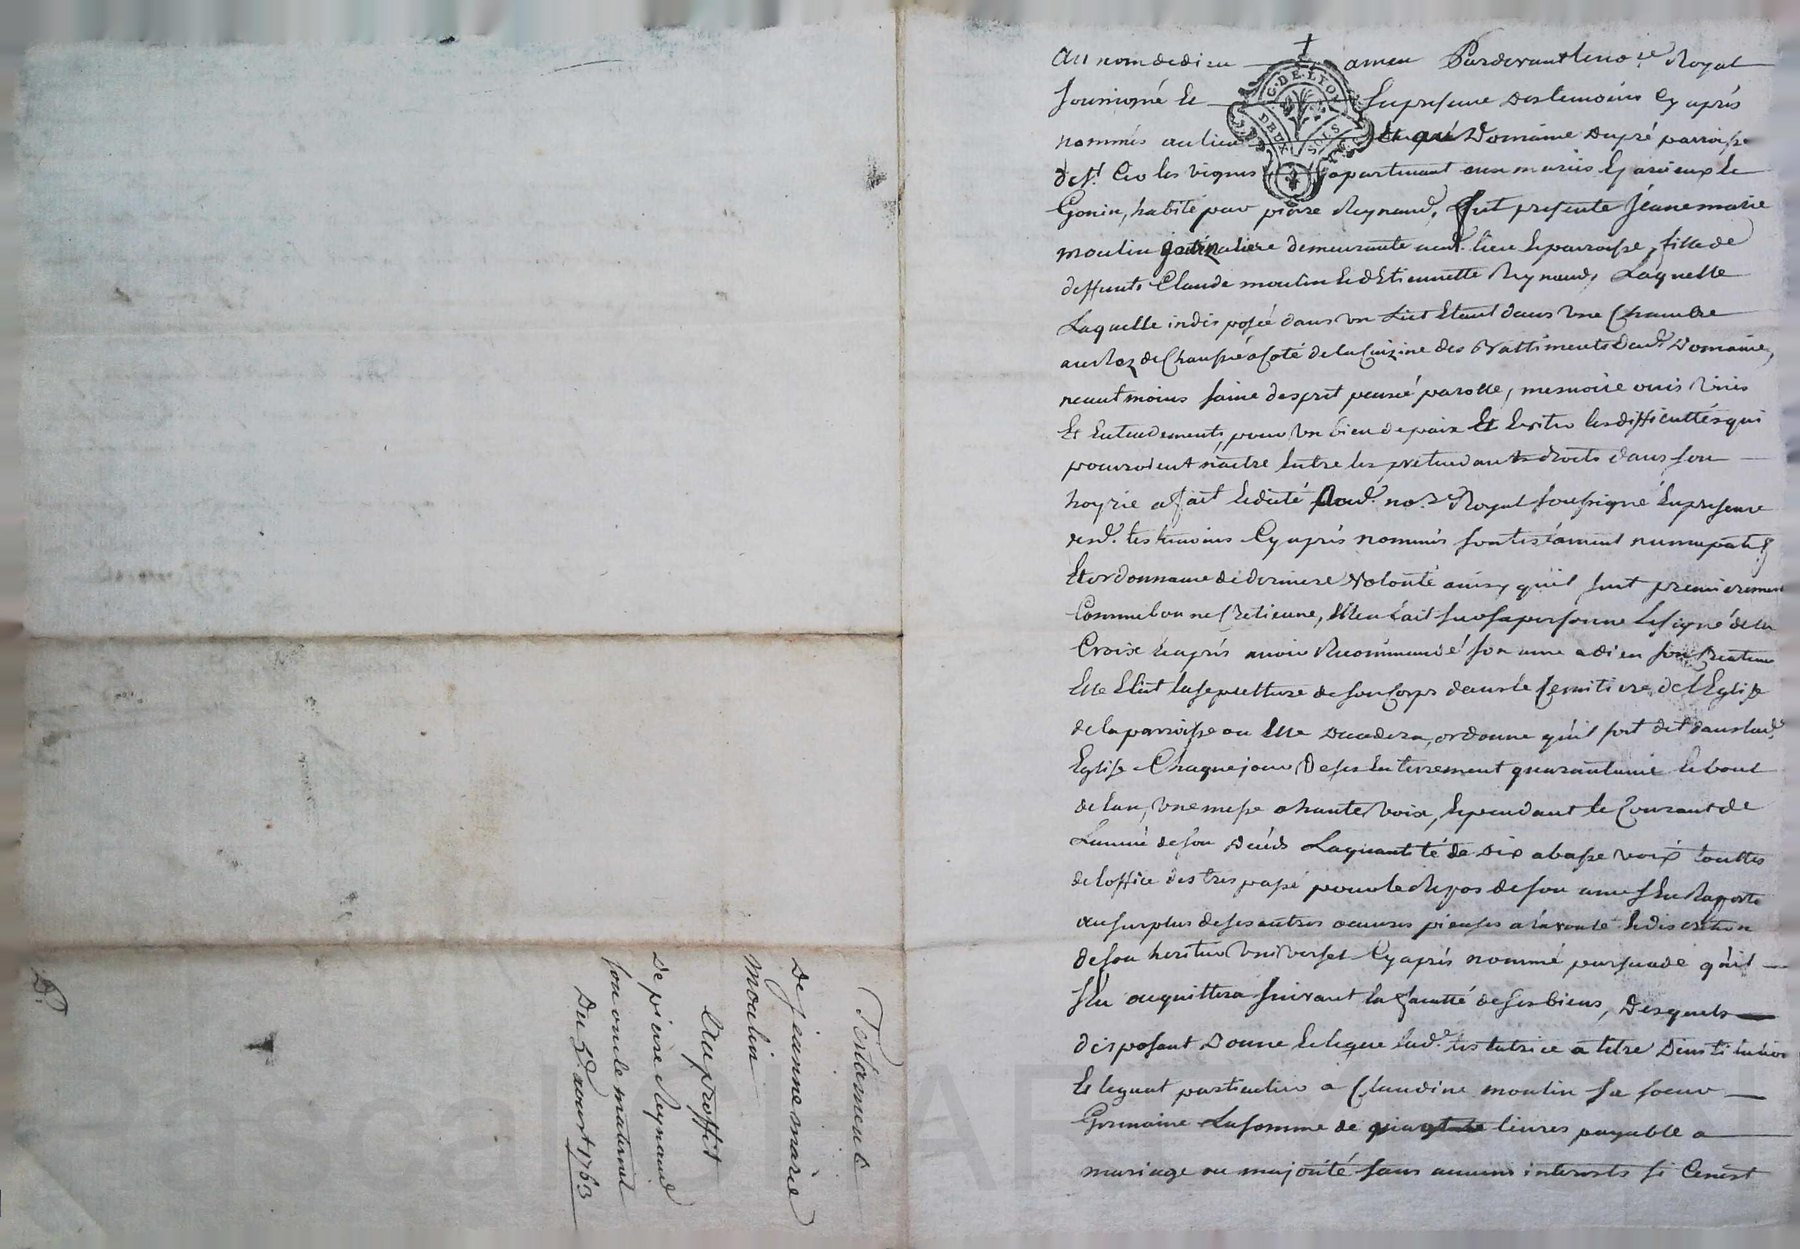 Testament
De jeanne marie
moulin
Au proffit
De pierre Reynaud
son oncle maternel
Du 5 aoust 1763
Au nom de dieu amen Pardevant le no.re Royal
soussigné et En presence des temoins Cy après
nommés au lieu Domaine Dupré parroisse
de St. Cir les vignes apartenant aux mariés
Gonin, habité par pierre Reynaud, fut presente Jeanne marie
moulin demeurante aud. lieu et parroisse, fille de
deffunts Claude moulin et d'Etiennette Reynaud, Laquelle
Laquelle indisposée dans un Lict Etant dans une Chambre
au Raz de Chaussé a Coté de la Cuizine des Battiments dud. Domaine,
neautmoins saine desprit pensée parolle, memoire ouis
Et Entendement, pour un bien de paix Et Eviter les difficultés qui
pourroient naitre Entre les pretendants droits dans son
hoyrie a fait et dicté aud. no.re Royal soussigné En presence
desd. temoins Cy après nommés son testament nuncupatif
Et ordonnance de derniere Volonté ainsy qu'il suit premierement
Comme bonne Chretienne, Elle a fait sur sa personne Le signe de la
Croix Et après avoir Recommandé son ame a dieu son Createur
Elle Elit la sepulture de son Corps dans le Cemitiere de l'Eglise
de la parroisse ou Elle decedera, ordonne qu'il soit dit dans lad.
Eglise Chaque jour De ses Enterrement quarantaine et bout
de lan, une messe a haute voix, Et pendant le Courant de
Lannée de son Decés La quantité de Dix a basse voix touttes
de l'office des trespassé pour le Repos de son ame s'En Raporte
au surplus de ses autres oeuvres pieuses a la vonté Et discretion
de son heritier Universel Cy après nommé persuade qu'il
s'En acquittera suivant la faculté de ses biens, Desquels
disposant Donne Et legue lad. testatrice a titre Dinstitution
Et leguat particulier a Claudine moulin sa soeur
Germaine La somme de livres payable a
mariage ou majorité sans aucuns interests si Ce n'est
C. DE. LYON
DEUX SOLS